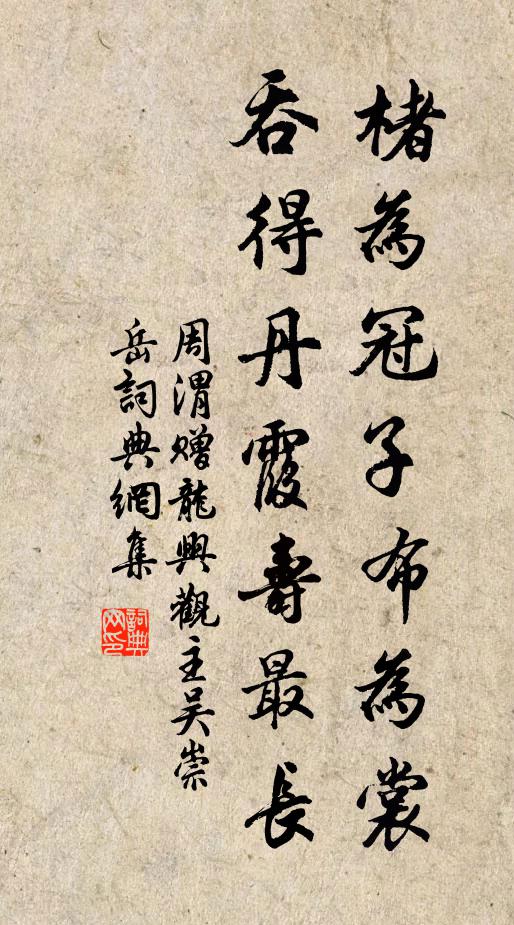 楮為冠子布為裳
吞得丹霞壽最長
周渭赠龍興觀主吴崇
岳詞典網集
詞典
网印